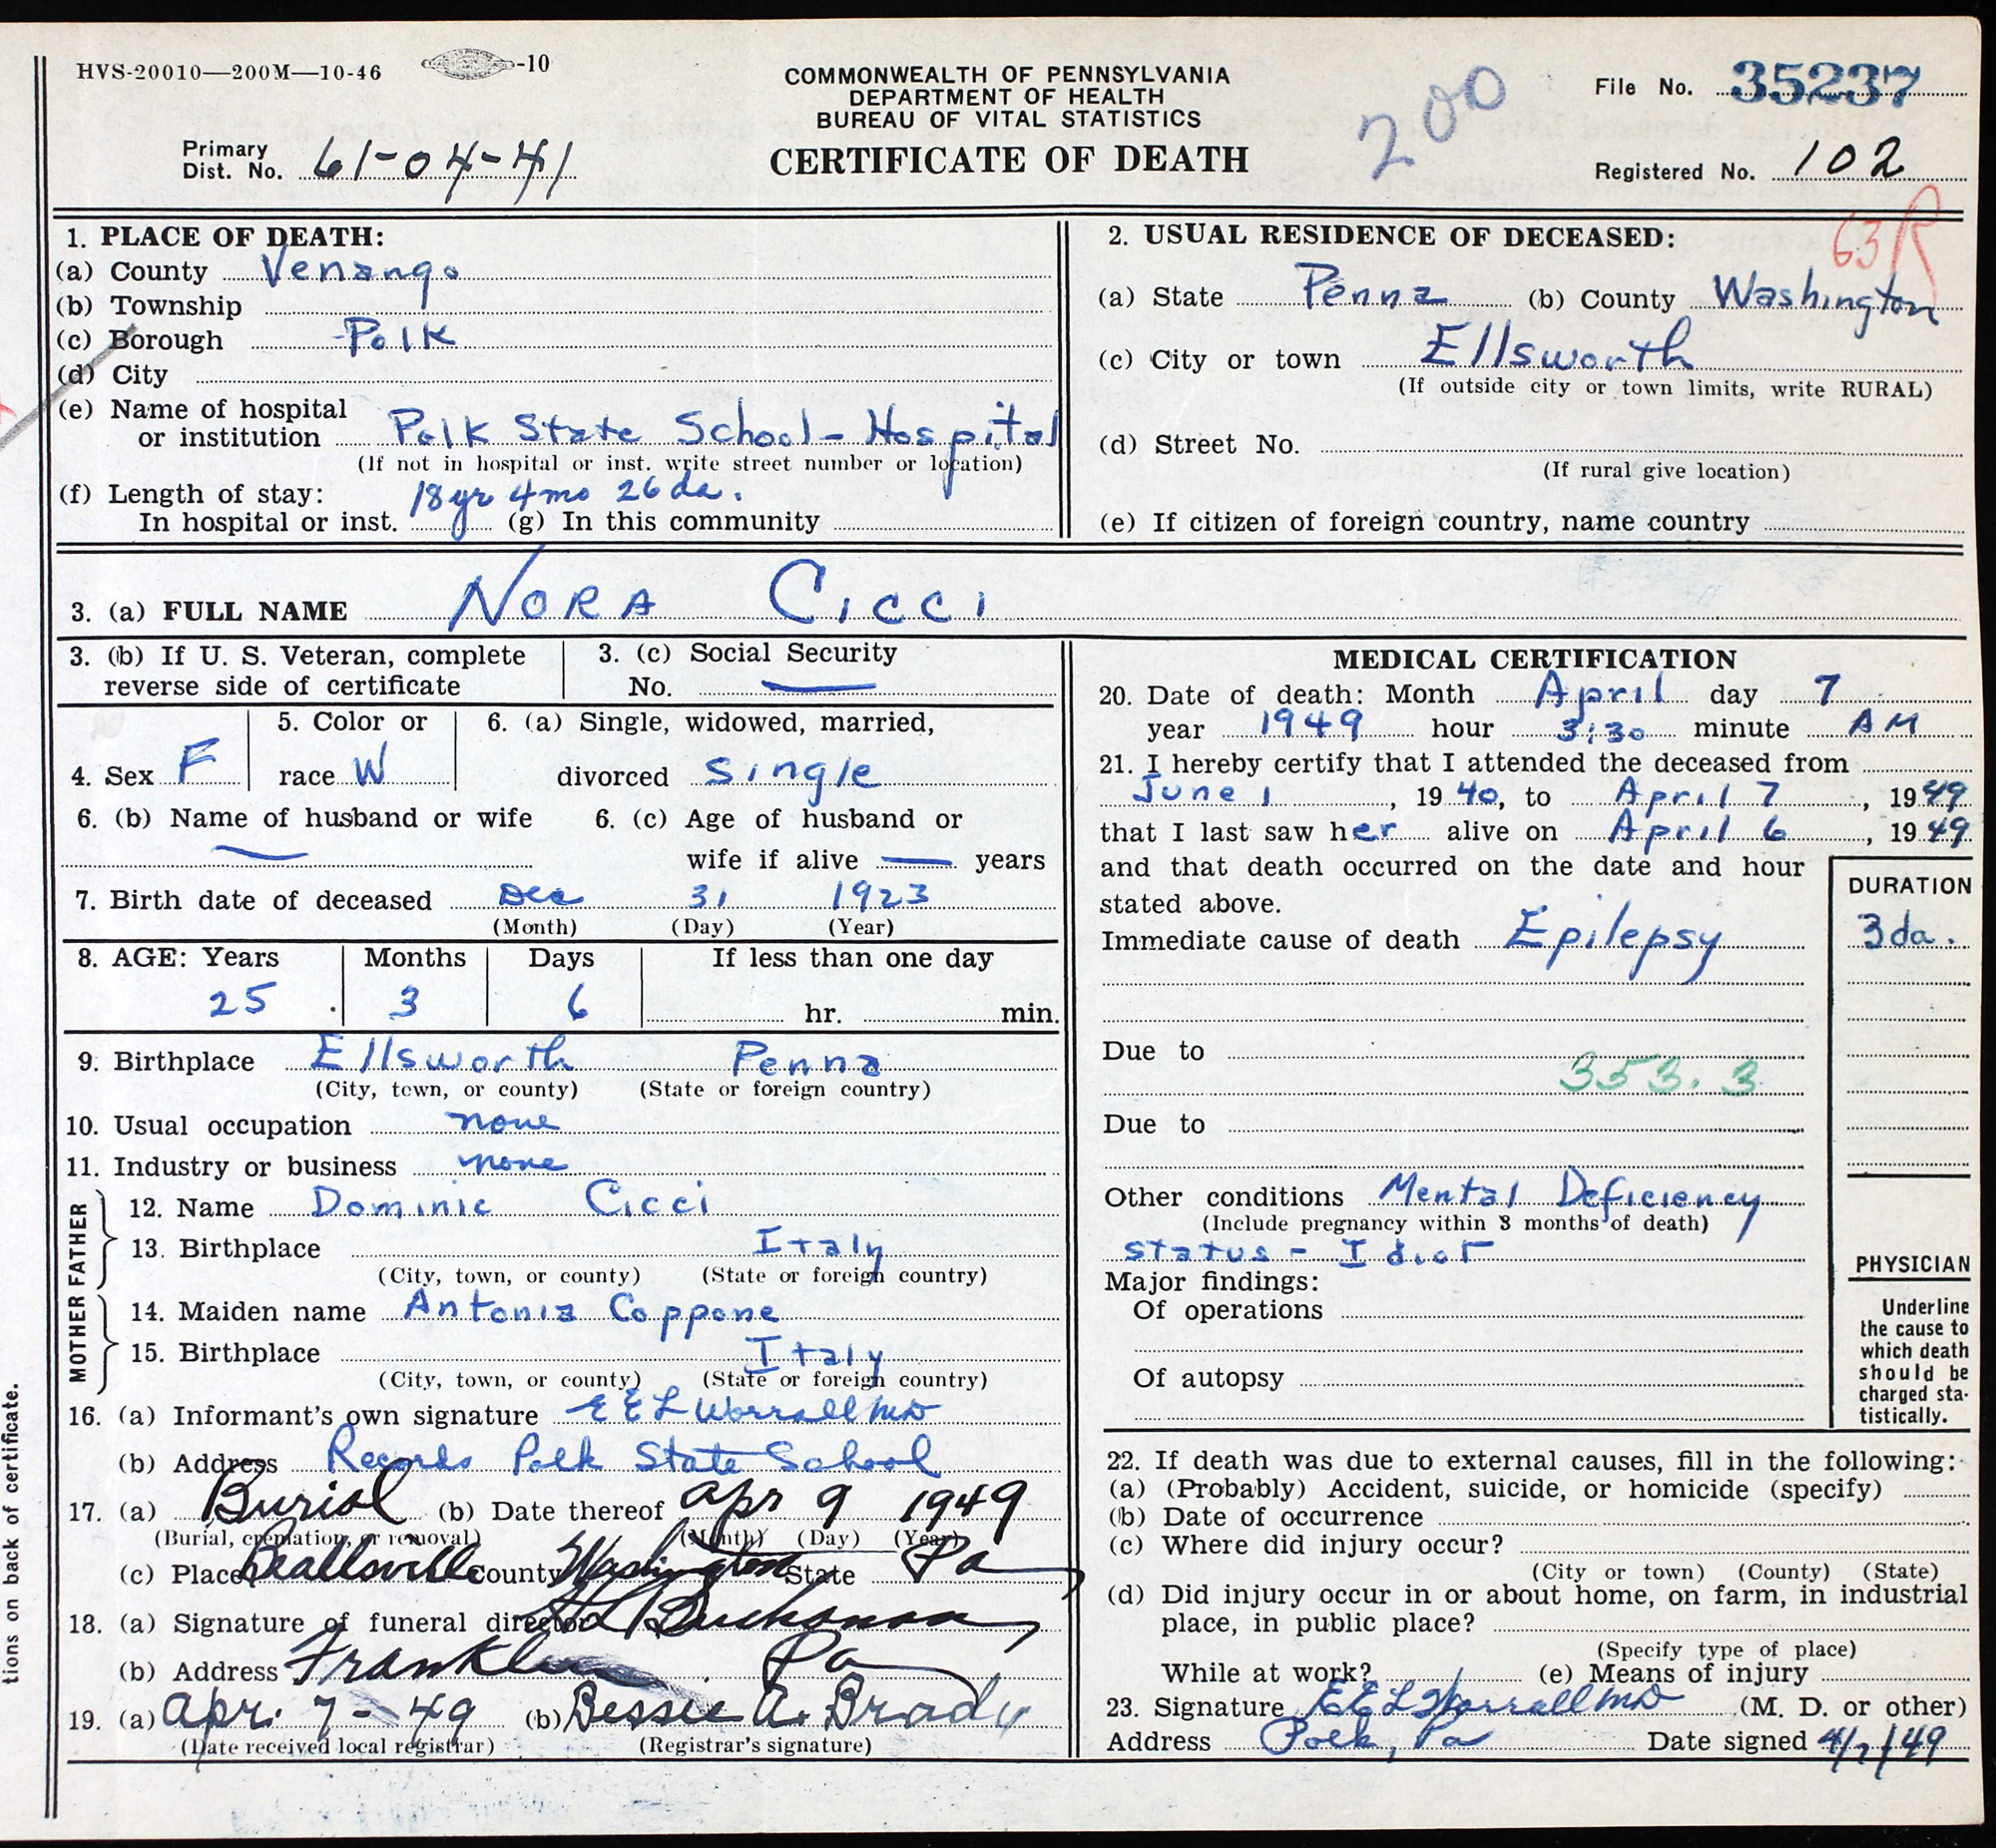 HVS-20010—200M—10-46 -10
COMMONWEALTH OF PENNSYLVANIA
DEPARTMENT OF HEALTH
BUREAU OF VITAL STATISTICS
CERTIFICATE OF DEATH
200
File No. 35237
Primary
Dist. No. 61-04-41
Registered No. 102
63R
1. PLACE OF DEATH:
(a) County Venango
(b) Township
(c) Borough Polk
(d) City
(e) Name of hospital
or institution Polk State School - Hospital
(If not in hospital or inst. write street number or location)
(f) Length of stay: 18 yr 4 mo 26 da.
In hospital or inst. (g) In this community
2. USUAL RESIDENCE OF DECEASED:
(a) State Penna (b) County Washington
(c) City or town Ellsworth
(If outside city or town limits, write RURAL)
(d) Street No.
(If rural give location)
(e) If citizen of foreign country, name country
3. (a) FULL NAME NORA CICCI
3. (b) If U. S. Veteran, complete
reverse side of certificate
3. (c) Social Security
No. —
4. Sex F
5. Color or
race W
6. (a) Single, widowed, married,
divorced Single
6. (b) Name of husband or wife
—
6. (c) Age of husband or
wife if alive — years
7. Birth date of deceased Dec 31 1923
(Month) (Day) (Year)
8. AGE: Years Months Days If less than one day
25 3 6 hr. min.
9. Birthplace Ellsworth Penna
(City, town, or county) (State or foreign country)
10. Usual occupation none
11. Industry or business none
FATHER
12. Name Dominic Cicci
13. Birthplace Italy
(City, town, or county) (State or foreign country)
MOTHER
14. Maiden name Antonia Coppone
15. Birthplace Italy
(City, town, or county) (State or foreign country)
16. (a) Informant's own signature E E L Worrall MD
(b) Address Records Polk State School
17. (a) Burial (b) Date thereof Apr 9 1949
(Burial, cremation, or removal) (Month) (Day) (Year)
(c) Place Beallsville County Washington State Pa
18. (a) Signature of funeral director Buchanan
(b) Address Franklin Pa
19. (a) Apr. 7-49 (b) Bessie A. Brady
(Date received local registrar) (Registrar's signature)
MEDICAL CERTIFICATION
20. Date of death: Month April day 7
year 1949 hour 3:30 minute AM
21. I hereby certify that I attended the deceased from
June 1, 1940, to April 7, 1949
that I last saw her alive on April 6, 1949
and that death occurred on the date and hour
stated above.
DURATION
Immediate cause of death Epilepsy 3 da.
Due to
353.3
Due to
Other conditions Mental Deficiency
(Include pregnancy within 3 months of death)
status - Idiot
Major findings:
Of operations
Of autopsy
PHYSICIAN
Underline
the cause to
which death
should be
charged sta-
tistically.
22. If death was due to external causes, fill in the following:
(a) (Probably) Accident, suicide, or homicide (specify)
(b) Date of occurrence
(c) Where did injury occur?
(City or town) (County) (State)
(d) Did injury occur in or about home, on farm, in industrial
place, in public place?
(Specify type of place)
While at work? (e) Means of injury
23. Signature E E L Worrall MD (M. D. or other)
Address Polk, Pa Date signed 4/7/49
tions on back of certificate.